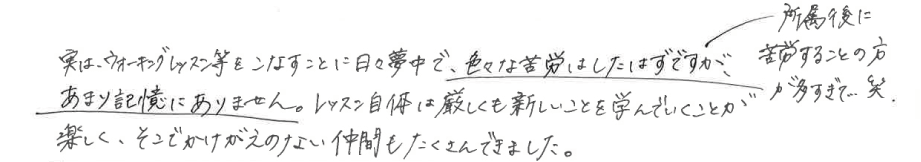 実は、ウォーキングレッスン等をこなすことに日々夢中で、色々な苦労はしたはずですが、
あまり記憶にありません。レッスン自体は厳しくも新しいことを学んでいくことが
楽しく、そこでかけがえのない仲間もたくさんできました。
所属後に
苦労することの方
が多すぎて…笑.